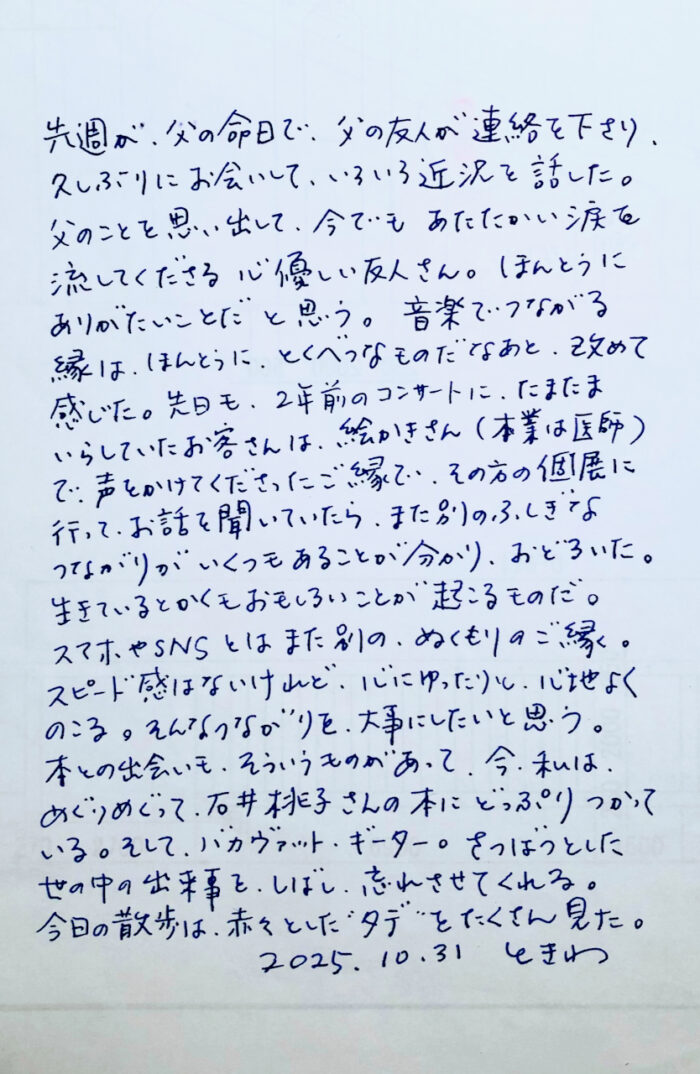 先週が、父の命日で、父の友人が連絡を下さり、
久しぶりにお会いして、いろいろ近況を話した。
父のことを思い出して、今でもあたたかい涙を
流してくださる心優しい友人さん。ほんとうに
ありがたいことだと思う。音楽でつながる
縁は、ほんとうに、とくべつなものだなあと、改めて
感じた。先日も、2年前のコンサートに、たまたま
いらしていたお客さんは、絵かきさん(本業は医師)
で、声をかけてくださったご縁で、その方の個展に
行って、お話を聞いていたら、また別のふしぎな
つながりがいくつもあることが分かり、おどろいた。
生きているとかくもおもしろいことが起こるものだ。
スマホやSNSとはまた別の、ぬくもりのご縁。
スピード感はないけれど、心にゆったりと、心地よく
のこる。そんなつながりを、大事にしたいと思う。
本との出会いも、そういうものがあって、今、私は、
めぐりめぐって、石井桃子さんの本にどっぷりつかって
いる。そして、バカヴァット・ギーター。さつばつとした
世の中の出来事を、しばし、忘れさせてくれる。
今日の散歩は、赤々とした"タデ"をたくさん見た。
2025.10.31 ときわ